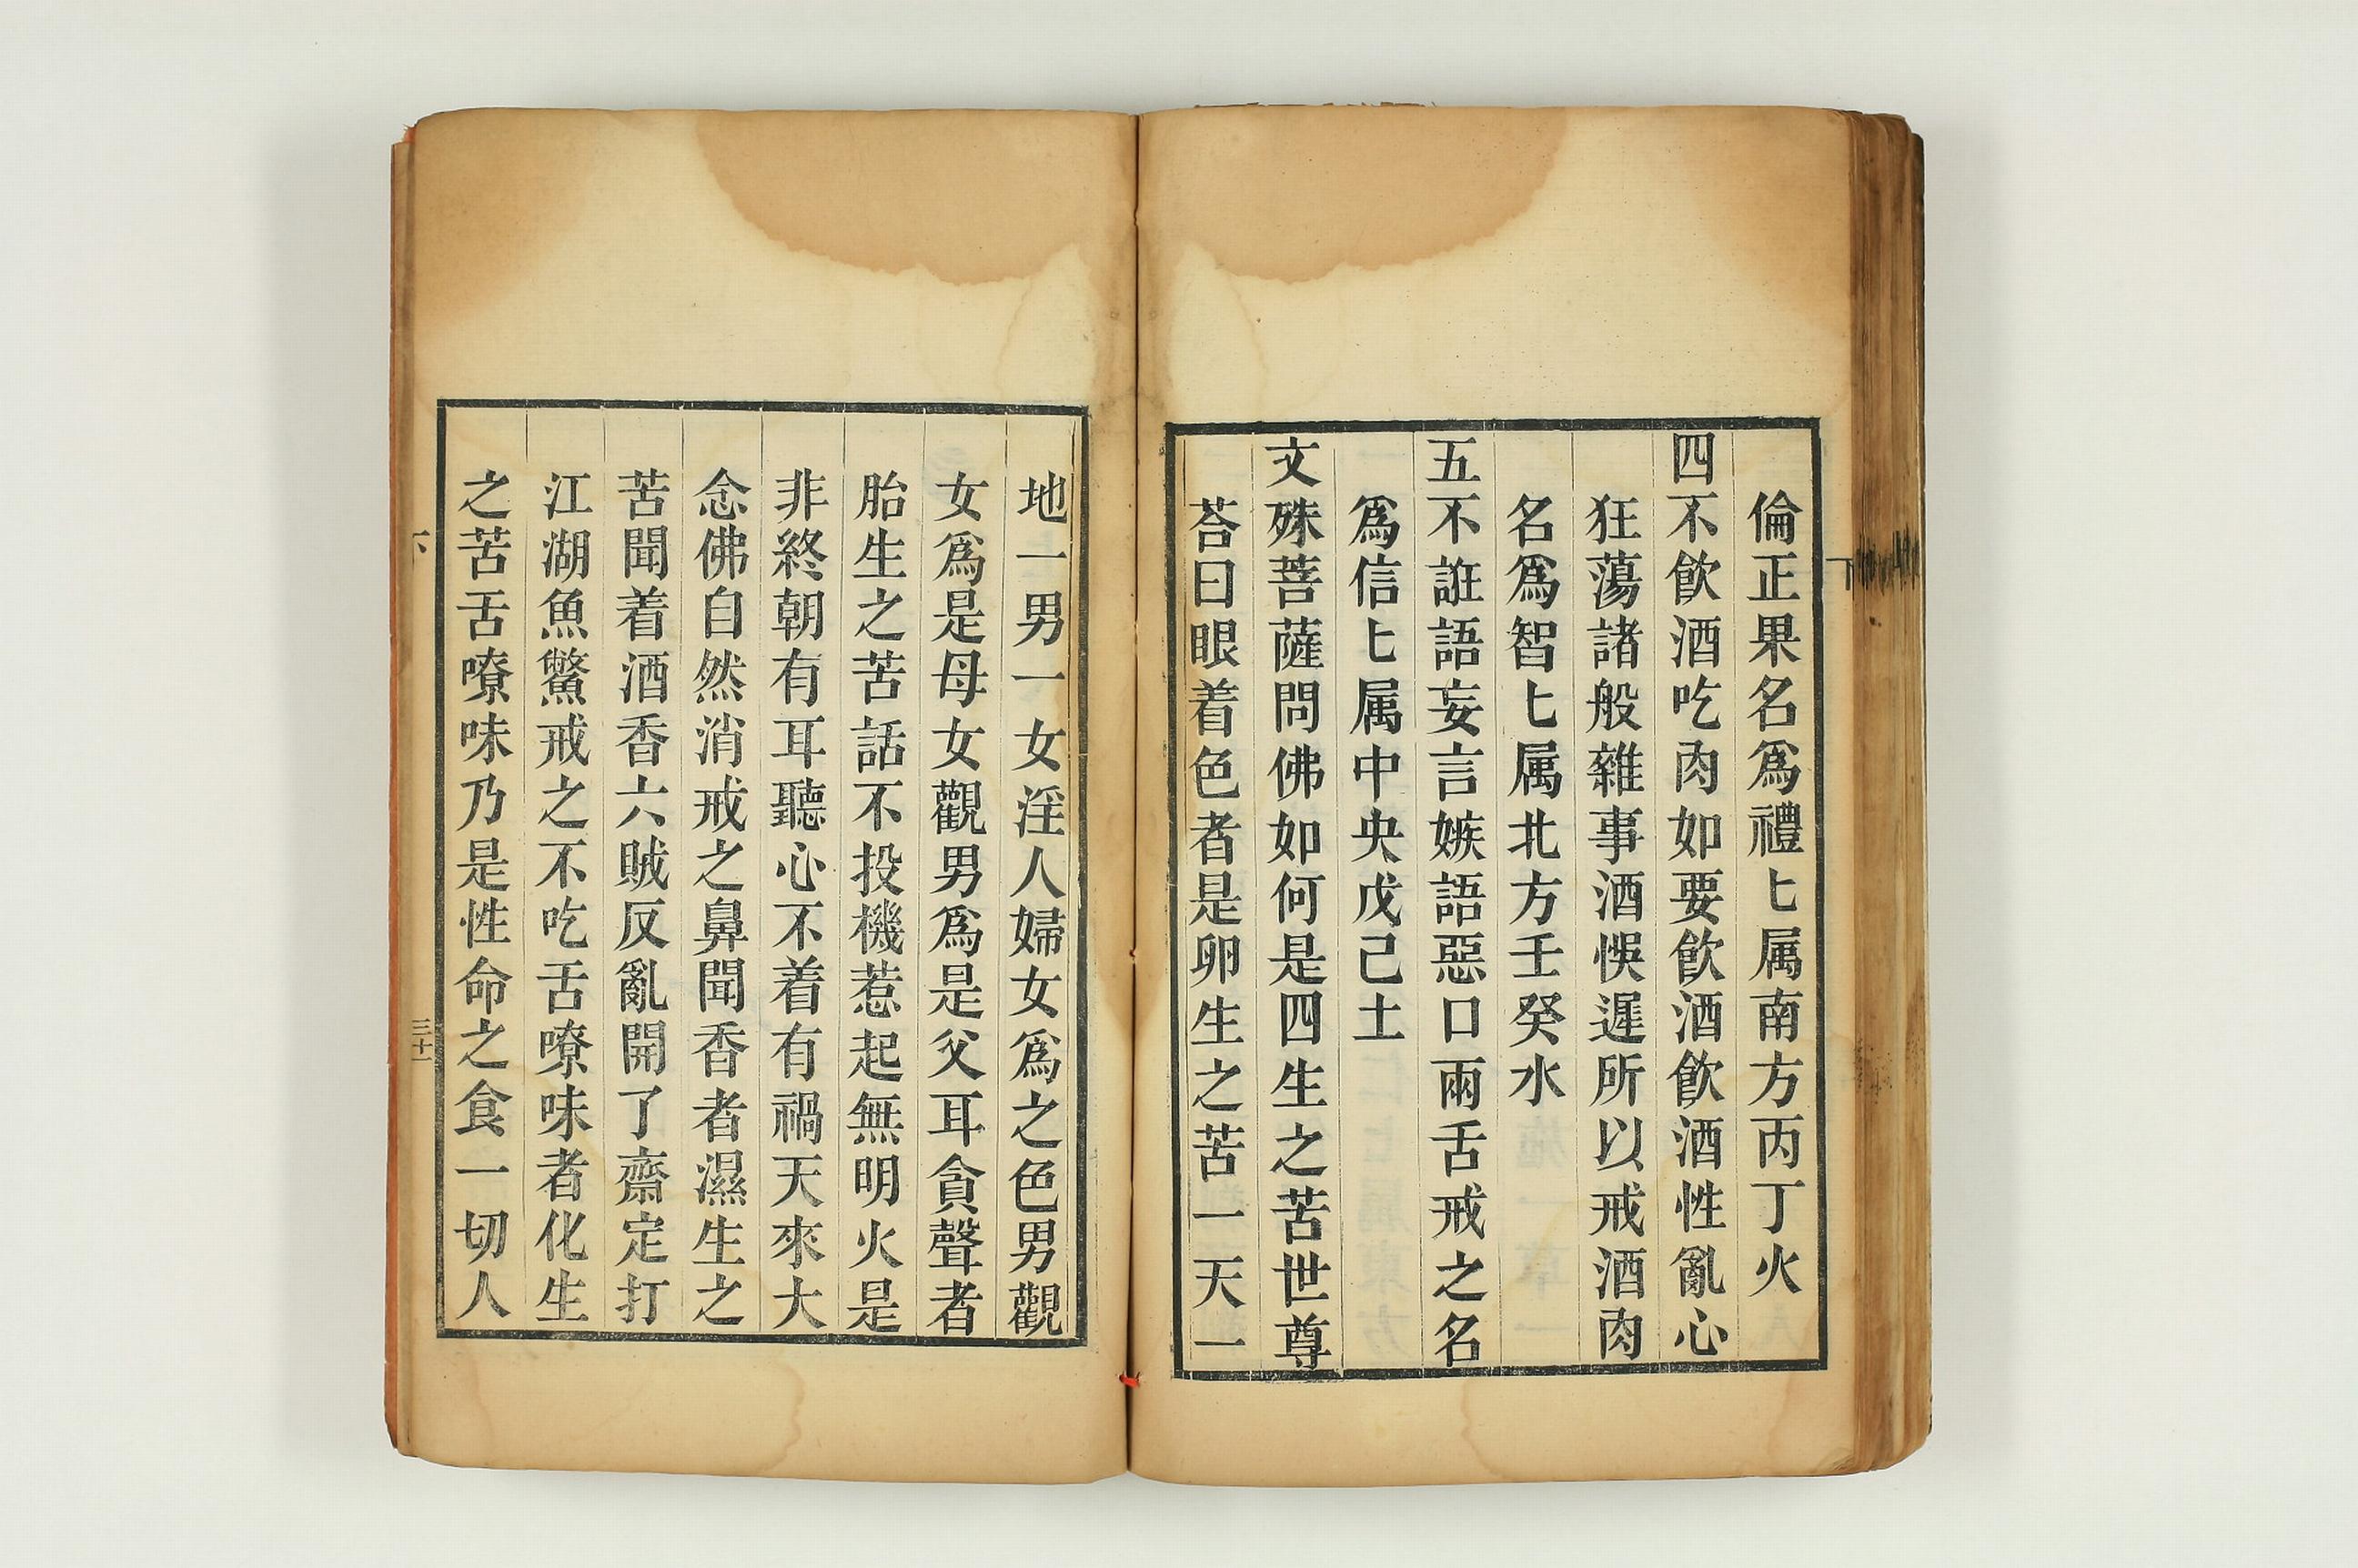 倫正果名爲禮匕属南方丙丁火
四不飮酒吃肉如要飮酒飮酒性亂心
狂蕩諸般雜事酒悞遲所以戒酒肉
名爲智匕属北方壬癸水
五不誑語妄言嫉語惡口兩舌戒之名
爲信匕属中央戊己土
文殊菩薩問佛如何是四生之苦世尊
荅曰眼着色者是卵生之苦一天一
地一男一女淫人婦女爲之色男觀
女爲是母女觀男爲是父耳貪聲者
胎生之苦話不投機惹起無明火是
非終朝有耳聽心不着有禍天來大
念佛自然消戒之鼻聞香者濕生之
苦聞着酒香六賊反亂開了齋定打
江湖魚鱉戒之不吃舌嘹味者化生
之苦舌嘹味乃是性命之食一切人
下
三十一